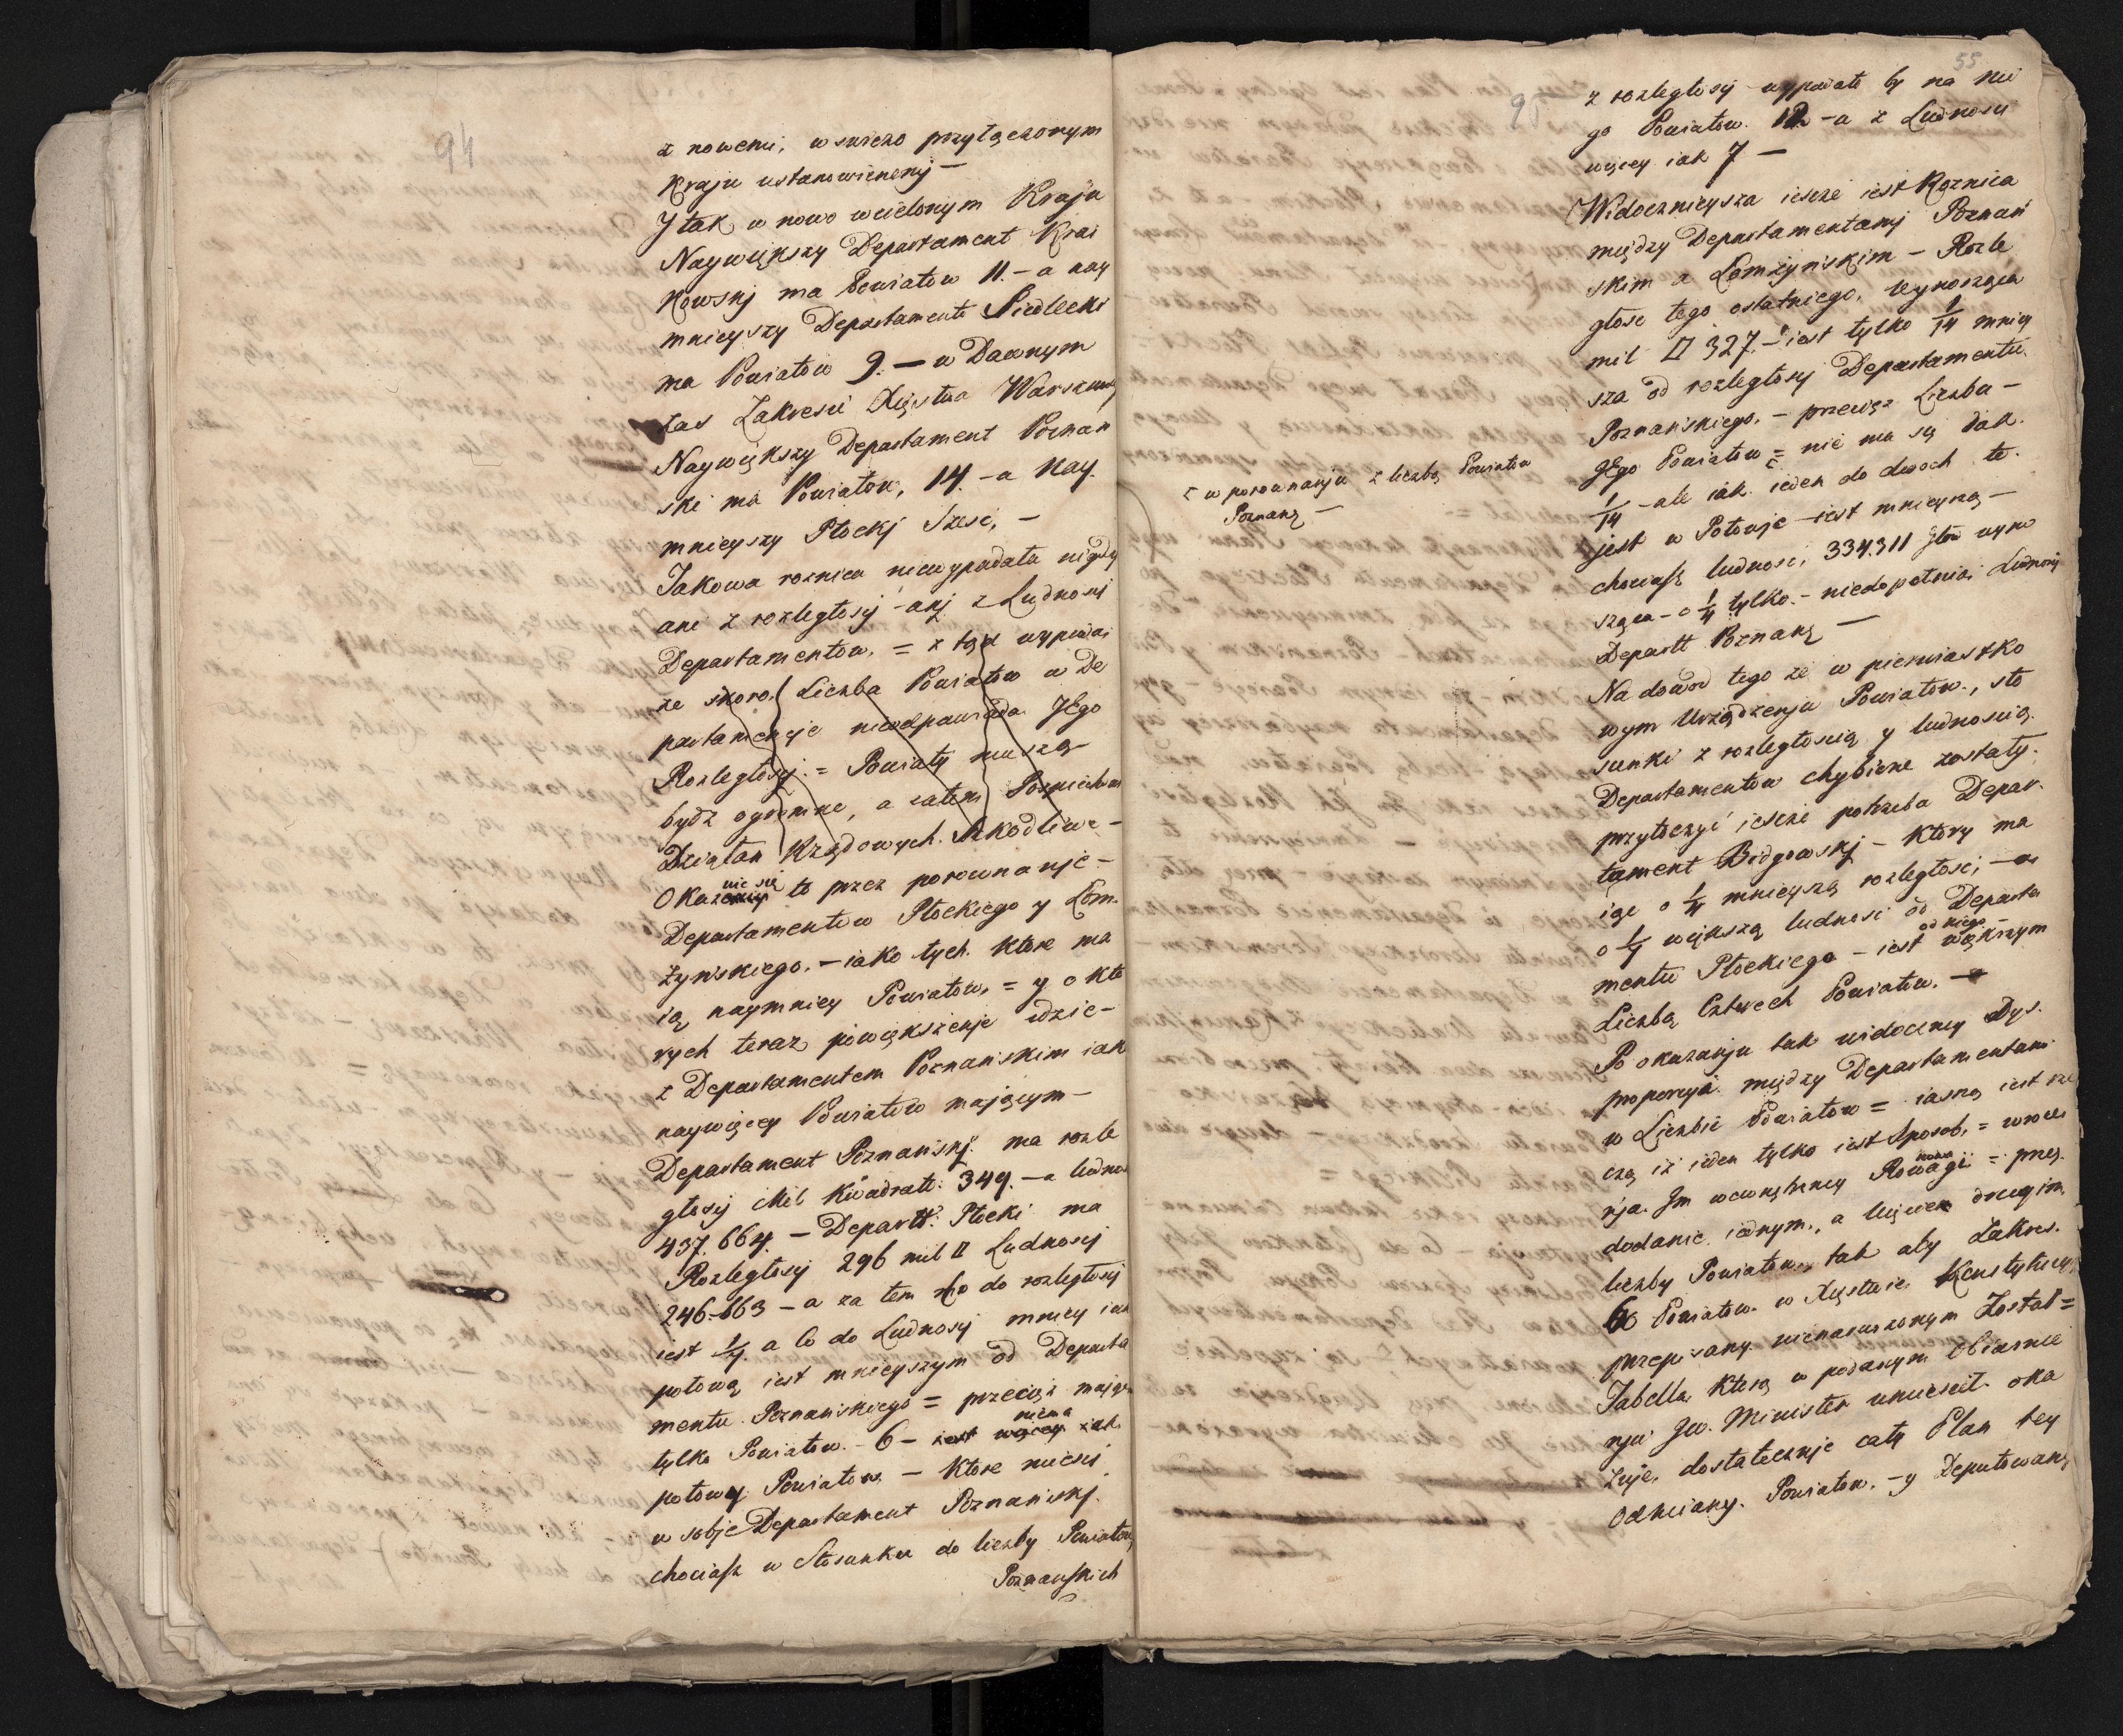 94
z nowemi, w swiezo przyłączonym
Kraju ustanowionemj —
J tak w nowo wcielonym Kraju
Naywiększy Departament Kra
kowskj ma Powiatow 11. – a nay
mnieyszy Departament Siedlecki
ma Powiatow 9. — w Dawnym
zas Zakresie Xięstwa Warszaws
Naywiększy Departament Poznan
ski ma Powiatow, 14. – a Nay.
mnieyszy Płockj Szesc, –
Jakowa roznica niewypadała nigdy
ani z rozległoscj anj z Ludnosci
Departamentow. = z tąd wypada
ze skoro Liczba Powiatow w De
partamencje nieodpowiada JEgo
Rozległoscj. = Powiaty muszą
bydz ogromne, a zatem Pospiechowi
Działan Rządowych. Szkodliwe –
Okaze nie się to przez porownanje –
Departamentow Płockiego y Łom.
zynskiego. – iako tych. ktore ma
ią naymniey Powiatow, = y o kto
rych teraz powiększenje idzie –
z Departamentem Poznanskim iak
naywięcey Powiatow maiącym –
Departament Poznanskj. ma rozle
głoscj Mil Kwadrat: 349. – a ludno
437.664. – Departt: Płocki ma
Rozległoscj 296 mil □ Ludnoscj
246.663 – a za tem Co do rozległoscj
iest 1/7. a Co do Ludnoscj mniey iak
połową iest mnieyszym od Departa
mentu Poznanskiego = przecięz maiąc
tylko Powiatow. – 6 – iest więcey niema iak
połowy Powiatow. – ktore miesci
w sobje Departament Poznanskj.
chociasz w Stosunku do liczby Powiatow
Poznanskich
55
95
z rozległoscj wypadało by na nie
go Powiatow. 12. – a z Ludnosci
więcey iak 7 —
Widocznieysza iescze iest Roznica
między Departamentamj Poznan
skim a Łomżynskim – Rozle
głosc tego ostatniego, wynosząca
mil □ 327. – iest tylko 1/14 mniey
sza od rozległoscj Departamentu
Poznanskiego. – przecięz Liczba –
JEgo Powiatow = nie ma się iak.
1/14 – ale iak ieden do dwoch to.
jest w Połowje iest mnieyszą –
chociasz ludnosc, 334.311 głow wyno
sząca – o 1/4 tylko. – niedopełnia Ludnoscj
Departt Poznanz —
w porownanju z liczbą Powiatow
Poznanz —
Na dowod tego ze w pierwiastko
wym Urządzenju Powiatow., sto
sunki z rozległoscią y ludnoscią.
Departamentow chybione zostały.
przytoczyć iescze potrzeba Depar.
tament Bidgowskj – ktory ma
iąc o 1/4 mnieyszą rozległosc, – a
o 1/7 większą ludnosc od Departa
mentu Płockiego – iest od niego – większym
Liczbą Czterech Powiatow. —
Po okazanju tak widoczney Dys.
proporcyi. między Departamentami
w Liczbie Powiatow = iasną iest rze
czą iż ieden tylko iest sposob, = wroce
nja. Jm wewnętrzney Rowagi nowa = przez.
dodanie iednym., a Ujęciem drugim,
liczby Powiatow, tak aby Zakres.
60 Powiatow w Xięstwie Konstytucyą
przepisany. nienaruszonym Został =
Tabella, ktorą w podanym Obiasnie
nju Jw. Minister umiescił. oka
zuje, dostatecznje cały Plan tey
Odmiany. Powiatow. – y Deputowany